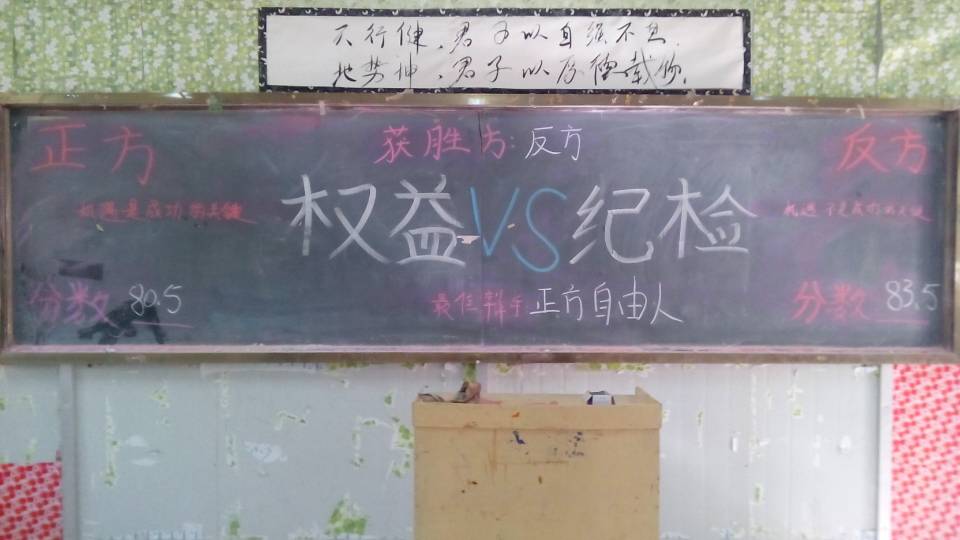 天行健，君子以自强不息.
地势坤，君子以厚德载物.
正方
获胜方：反方
反方
机遇是成功的关键
权益VS纪检
机遇不是成功的关键
分数 80.5
最佳辩手 正方自由人
分数 83.5